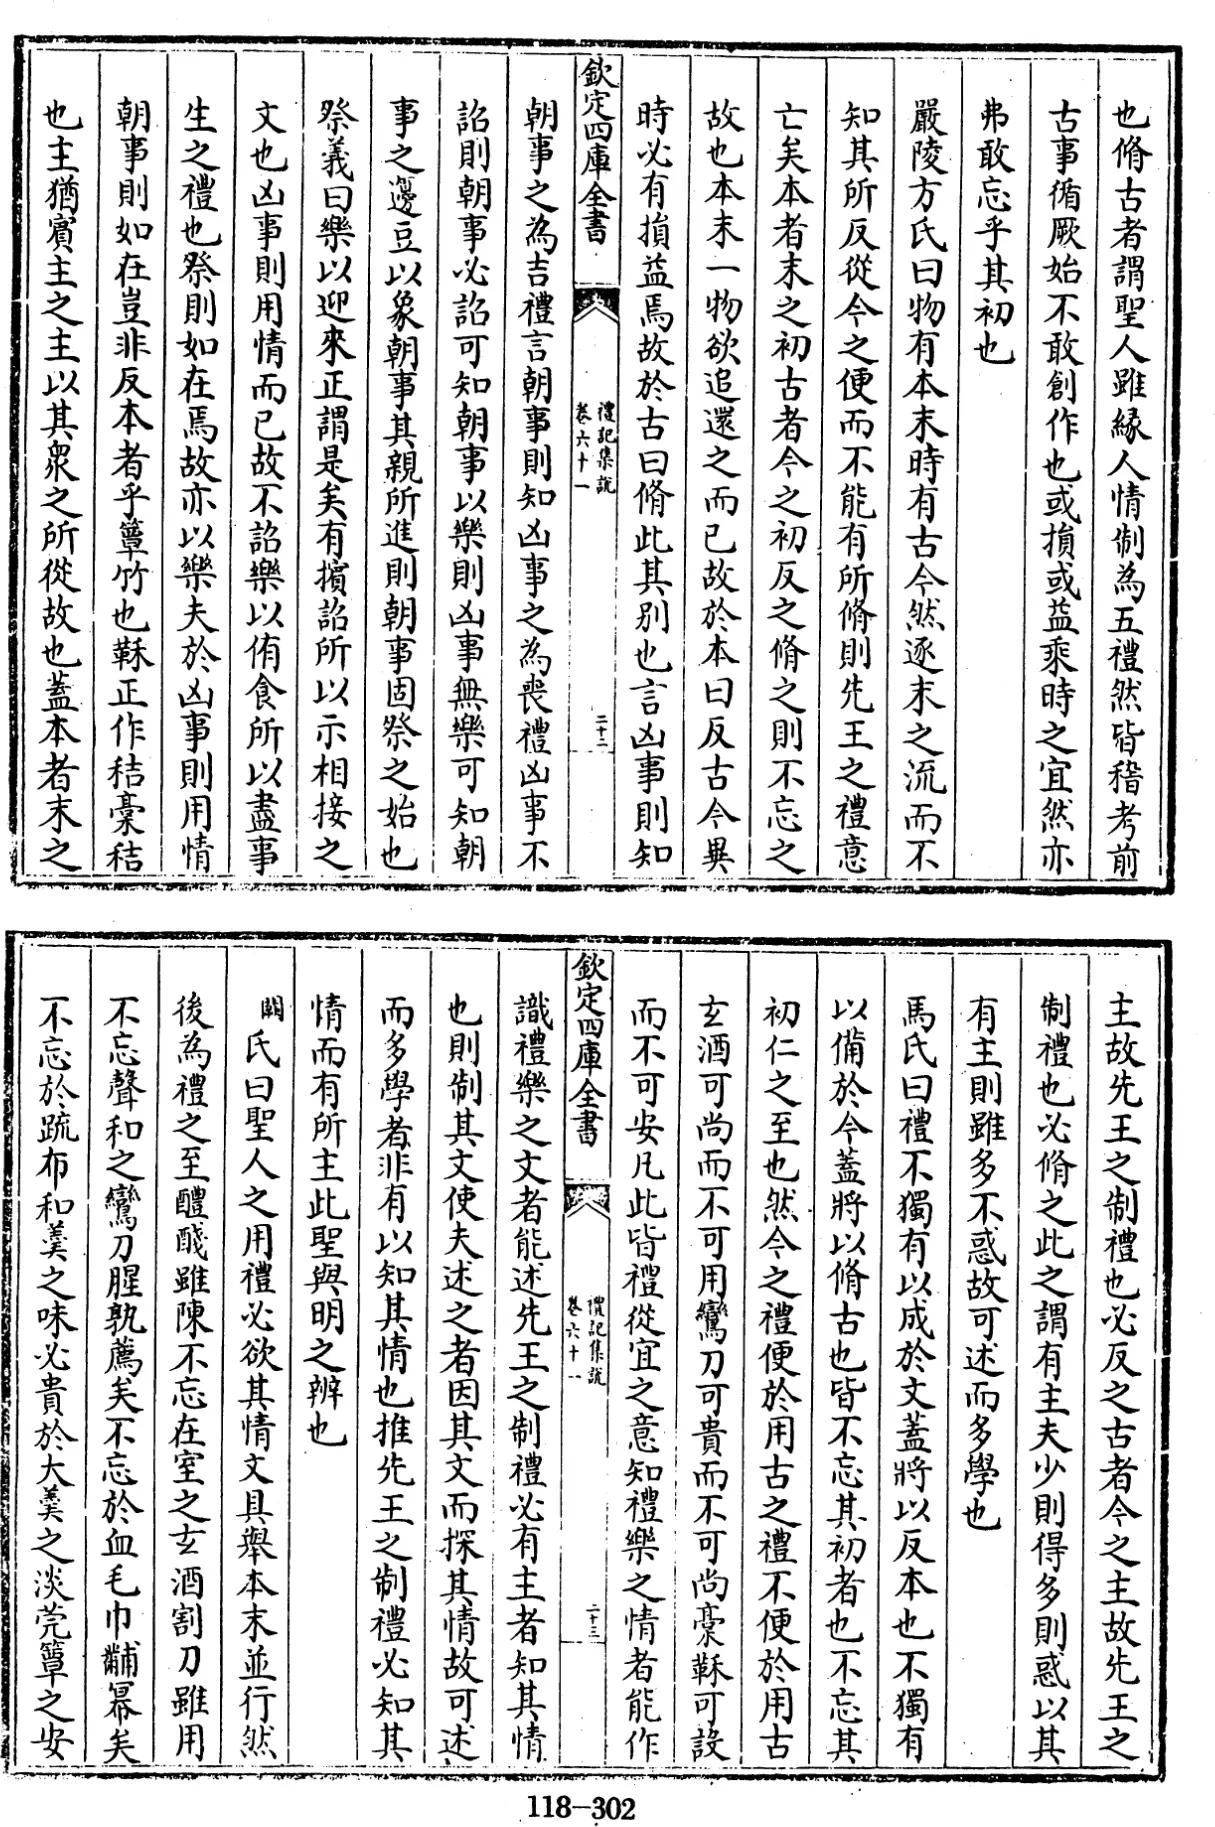 也脩古者謂聖人雖緣人情制為五禮然皆稽考前
古事循厥始不敢創作也或損或益乘時之宜然亦
弗敢忘乎其初也
嚴陵方氏曰物有本末時有古今然逐末之流而不
知其所反從今之便而不能有所脩則先王之禮意
亡矣本者末之初古者今之初反之脩之則不忘之
故也本末一物欲追還之而已故於本曰反古今異
時必有損益焉故於古曰脩此其别也言凶事則知
欽定四庫全書
禮記集說
卷六十一
二十二
朝事之為吉禮言朝事則知凶事之為喪禮凶事不
詔則朝事必詔可知朝事以樂則凶事無樂可知朝
事之籩豆以象朝事其親所進則朝事固祭之始也
祭義曰樂以迎來正謂是矣有擯詔所以示相接之
文也凶事則用情而已故不詔樂以侑食所以盡事
生之禮也祭則如在焉故亦以樂夫於凶事則用情
朝事則如在豈非反本者乎簟竹也鞂正作秸稾秸
也主猶賓主之主以其衆之所從故也蓋本者末之
主故先王之制禮也必反之古者今之主故先王之
制禮也必脩之此之謂有主夫少則得多則惑以其
有主則雖多不惑故可述而多學也
馬氏曰禮不獨有以成於文蓋將以反本也不獨有
以備於今蓋將以脩古也皆不忘其初者也不忘其
初仁之至也然今之禮便於用古之禮不便於用古
玄酒可尚而不可用鸞刀可貴而不可尚稾鞂可設
而不可安凡此皆禮從宜之意知禮樂之情者能作
欽定四庫全書
禮記集說
卷六十一
二十三
識禮樂之文者能述先王之制禮必有主者知其情
也則制其文使夫述之者因其文而探其情故可述
而多學者非有以知其情也推先王之制禮必知其
情而有所主此聖與明之辨也
闕氏曰聖人之用禮必欲其情文具舉本末並行然
後為禮之至醴醆雖陳不忘在室之玄酒割刀雖用
不忘聲和之鸞刀腥孰薦矣不忘於血毛巾黼冪矣
不忘於疏布和羹之味必貴於大羹之淡莞簟之安
118-302